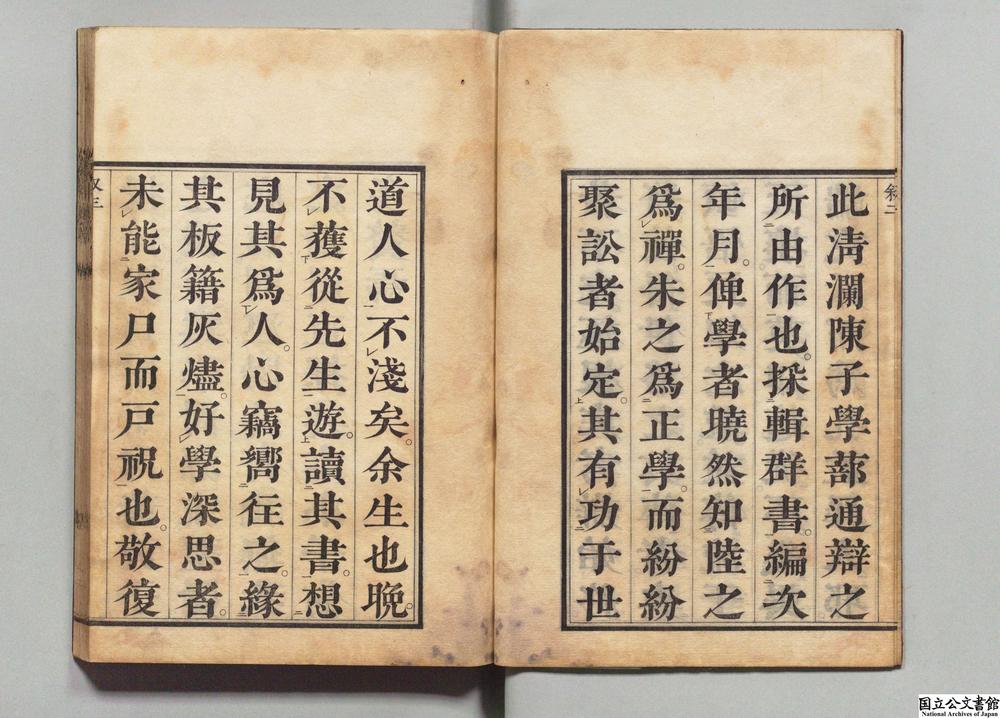 叙二
此清瀾陳子學蔀通辯之
所由作也。採輯群書。編次
年月。俾學者曉然知陸之
爲禪。朱之爲正學。而紛紛
聚訟者始定。其有功于世
道人心不淺矣。余生也晩。
不獲從先生遊。讀其書。想
見其爲人。心竊嚮往之。緣
其板籍灰燼。好學深思者。
未能家尸而戸祝也。敬復
叙三
国立公文書館
National Archives of Japan